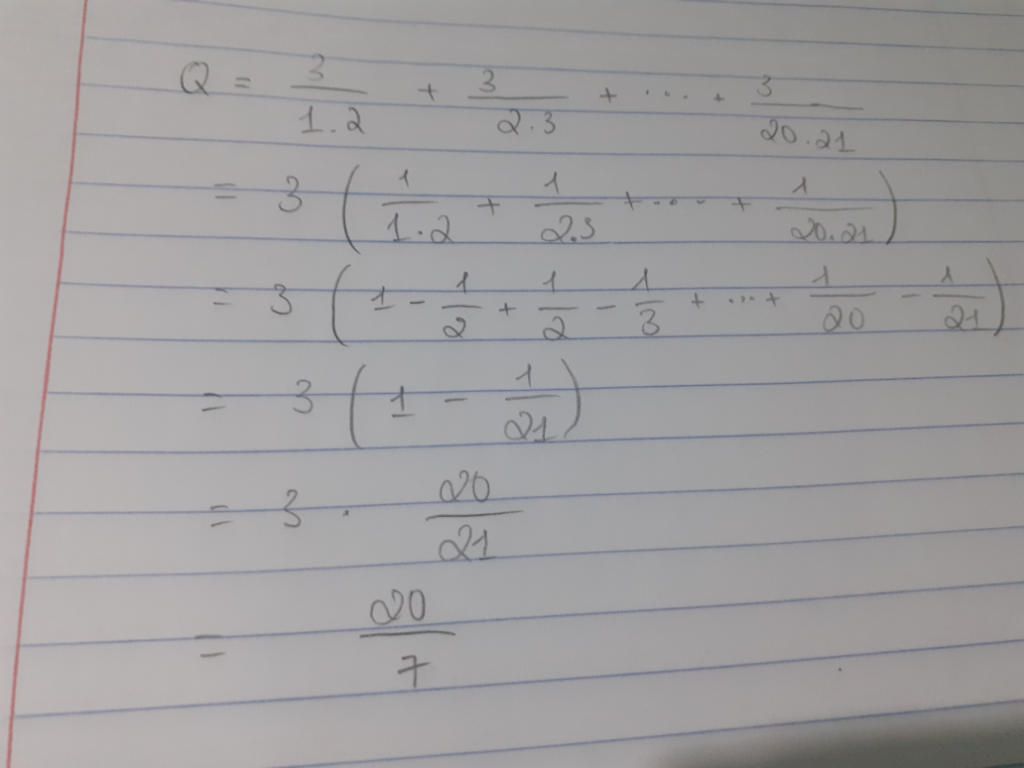 Q = 3/1.2 + 3/2.3 + .... + 3/20.21
= 3 (1/1.2 + 1/2.3 + .... + 1/20.21)
= 3 (1 - 1/2 + 1/2 - 1/3 + ... + 1/20 - 1/21)
= 3 (1 - 1/21)
= 3 . 20/21
= 20/7